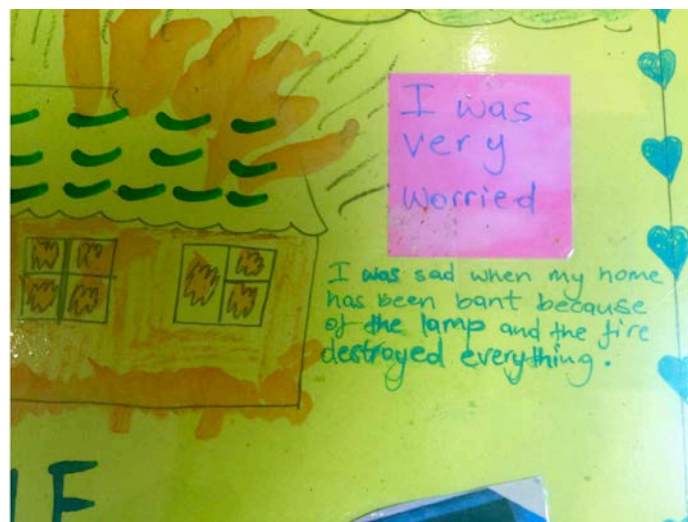 I was
very
worried
I was sad when my home
has been bant because
of the lamp and the fire
destroyed everything.